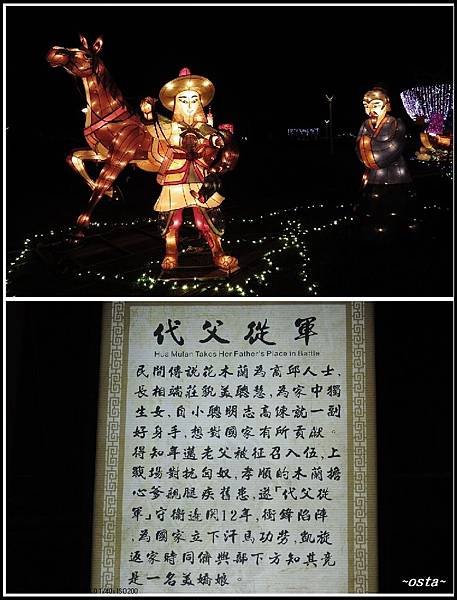 代父從軍
Hua Mulan Takes Her Father's Place in Battle
民間傳說花木蘭為商邱人士，
長相端莊貌美聰慧，為家中獨
生女，自小聰明志高練就一副
好身手，想對國家有所貢獻。
得知年邁老父被征召入伍，上
戰場對抗匈奴，孝順的木蘭擔
心爹親腿疾舊患，遂「代父從
軍」守衛邊関12年，衝鋒陷陣
，為國家立下汗馬功勞，凱旋
返家時同儕與部下方知其竟
是一名美嬌娘。
ISO200
~osta~